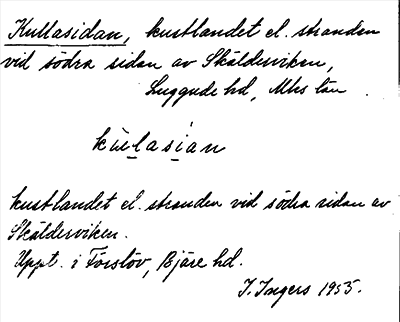 Kullasidan, kustlandet el. stranden
vid södra sidan av Skälderviken,
Luggude hd, Mhs län.
kulasian
kustlandet el. stranden vid södra sidan av
Skälderviken.
Uppt. i Förslöv, Bjäre hd.
I. Ingers 1955.